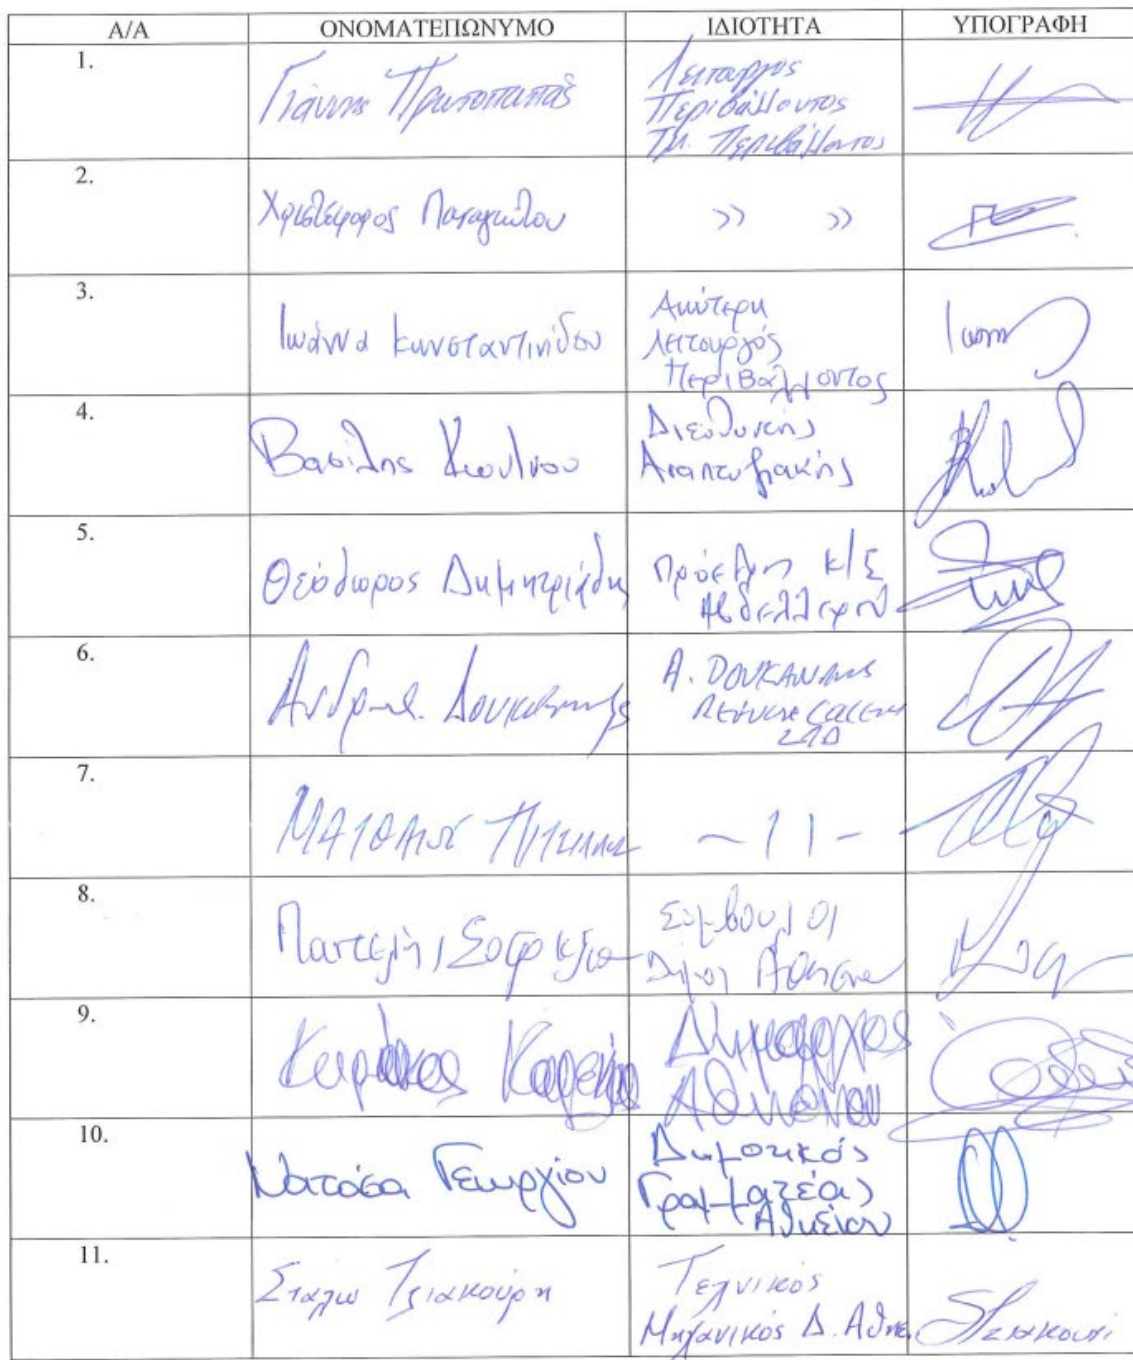 Α/Α ΟΝΟΜΑΤΕΠΩΝΥΜΟ ΙΔΙΟΤΗΤΑ ΥΠΟΓΡΑΦΗ
1. Γιάννης Πρωτοπαπάς Λειτουργός
Περιβάλλοντος
Τμ. Περιβάλλοντος
2. Χριστόφορος Παναγιώτου » »
3. Ιωάννα Κωνσταντινίδου Ανώτερη
Λειτουργός
Περιβάλλοντος
4. Βασίλης Διευθυντής
Αναπτυξιακής
5. Θεόδωρος Δημητριάδης Πρόεδρος Κ/Σ
Αβδελλερού
6. Α. DOUKANARIS
LTD
7. ΜΑΤΘΑΙΟΣ - 11 -
8. Παντελής Σοφοκλέους Σύμβουλος
Δήμου Αθηένου
9. Κυριάκος Καρεκλάς Δήμαρχος
Αθηένου
10. Νατάσα Γεωργίου Δημοτικός
Γραμματέας
Αθηένου
11. Στάλω Τζιακούρη Τεχνικός
Μηχανικός Δ. Αθηε.